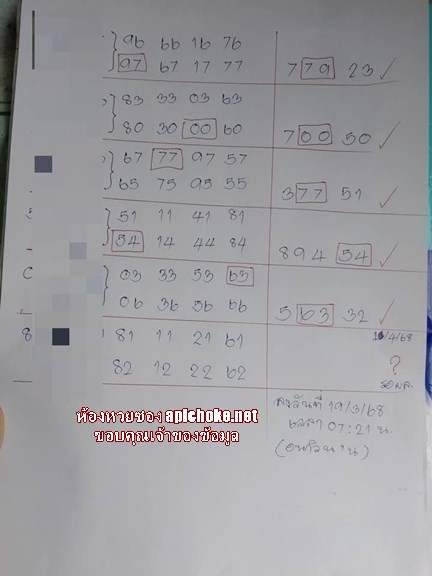 96 66 16 76
97 67 17 77
779 23
83 33 03 63
80 30 00 60
700 50
67 77 97 57
65 75 95 55
377 51
51 11 41 81
54 14 44 84
894 54
03 33 53 63
06 36 56 66
563 32
81 11 21 61
16/4/68
82 12 22 62
?
รอผล
19/3/68
เวลา 07:21 น.
ห้องหวยซอง apichoke.net
ขอบคุณเจ้าของข้อมูล